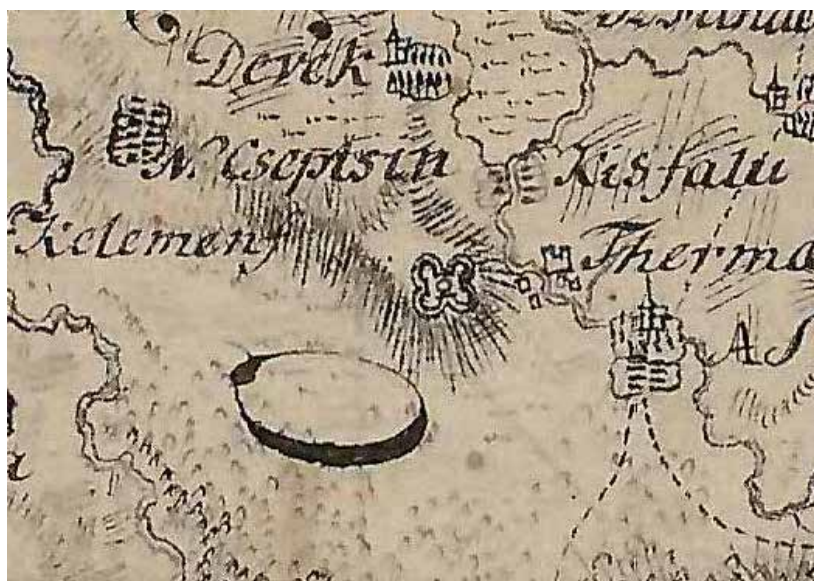 Devek
N. Csepesin
Kisfalu
Kelemenf
Therma
AS